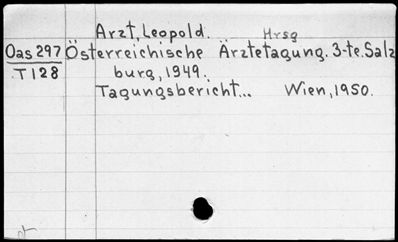 Arzt, Leopold. Hrsg
Oas 297 Österreichische Ärztetagung. 3-te. Salz
T128 burg, 1949.
Tagungsbericht... Wien, 1950.